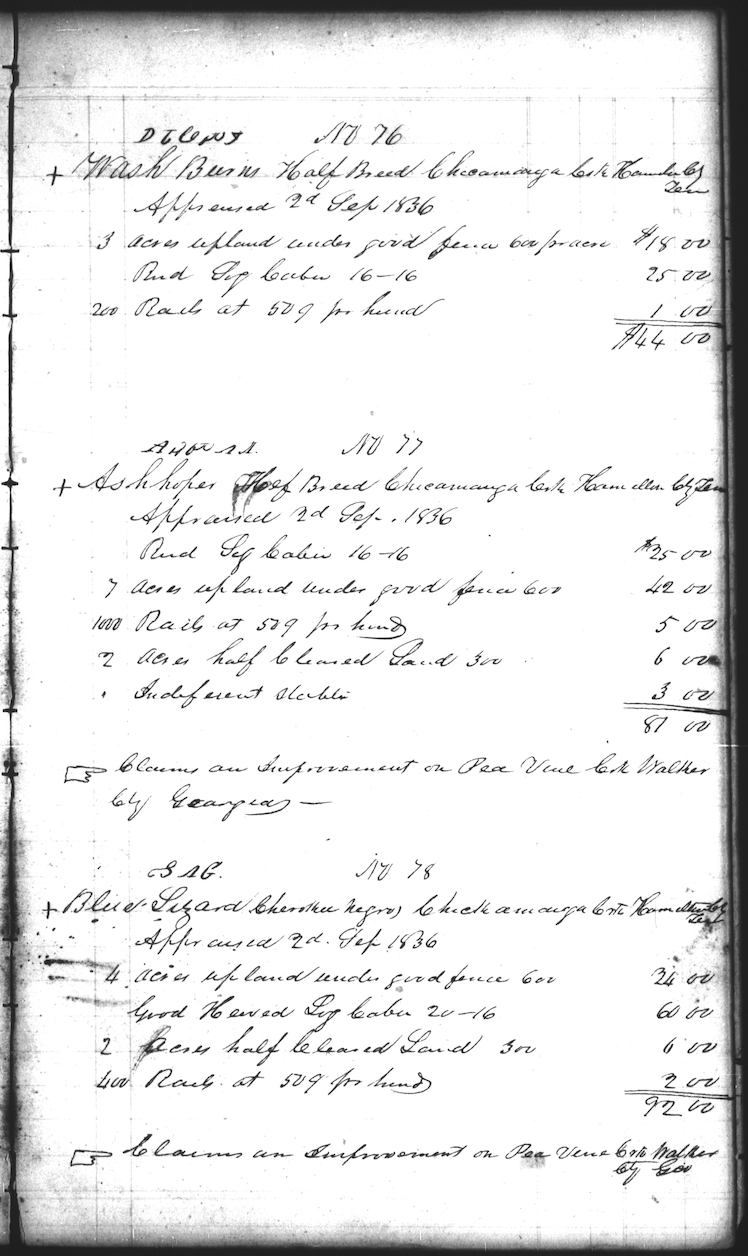 No 76
+ Wash Burns Half Breed Chicamauga Crk Hamiln Cty
Ten
Appraised 2d Sep 1836
3 acres upland under good fence 600 pr acre $18 00
Rnd Log Cabin 16-16 25 00
200 Rails at 50c pr hund 1 00
$44 00
No 77
+ Ashhoper Half Breed Chicamauga Crk Hamilton Cty Ten
Appraised 2d Sep. 1836
Rnd Log Cabin 16-16 $25 00
7 acres upland under good fence 600 42 00
1000 Rails at 50c pr hund 5 00
2 acres half Cleared Land 300 6 00
" Indeferent stable 3 00
81 00
☞ Claims an Improvement on Pea Vine Crk Walker
Cty Georgia —
No 78
+ Blue Lizard Cherokee Negro) Chickamauga Crk Hamilton Cty
Ten
Appraised 2d. Sep 1836
4 acres upland under good fence 600 24 00
Good Hewed Log Cabin 20-16 60 00
2 Acres half Cleared Land 300 6 00
400 Rails at 50c pr hund 2 00
92 00
☞ Claims an Improvement on Pea Vine Crk Walker
Cty Geo